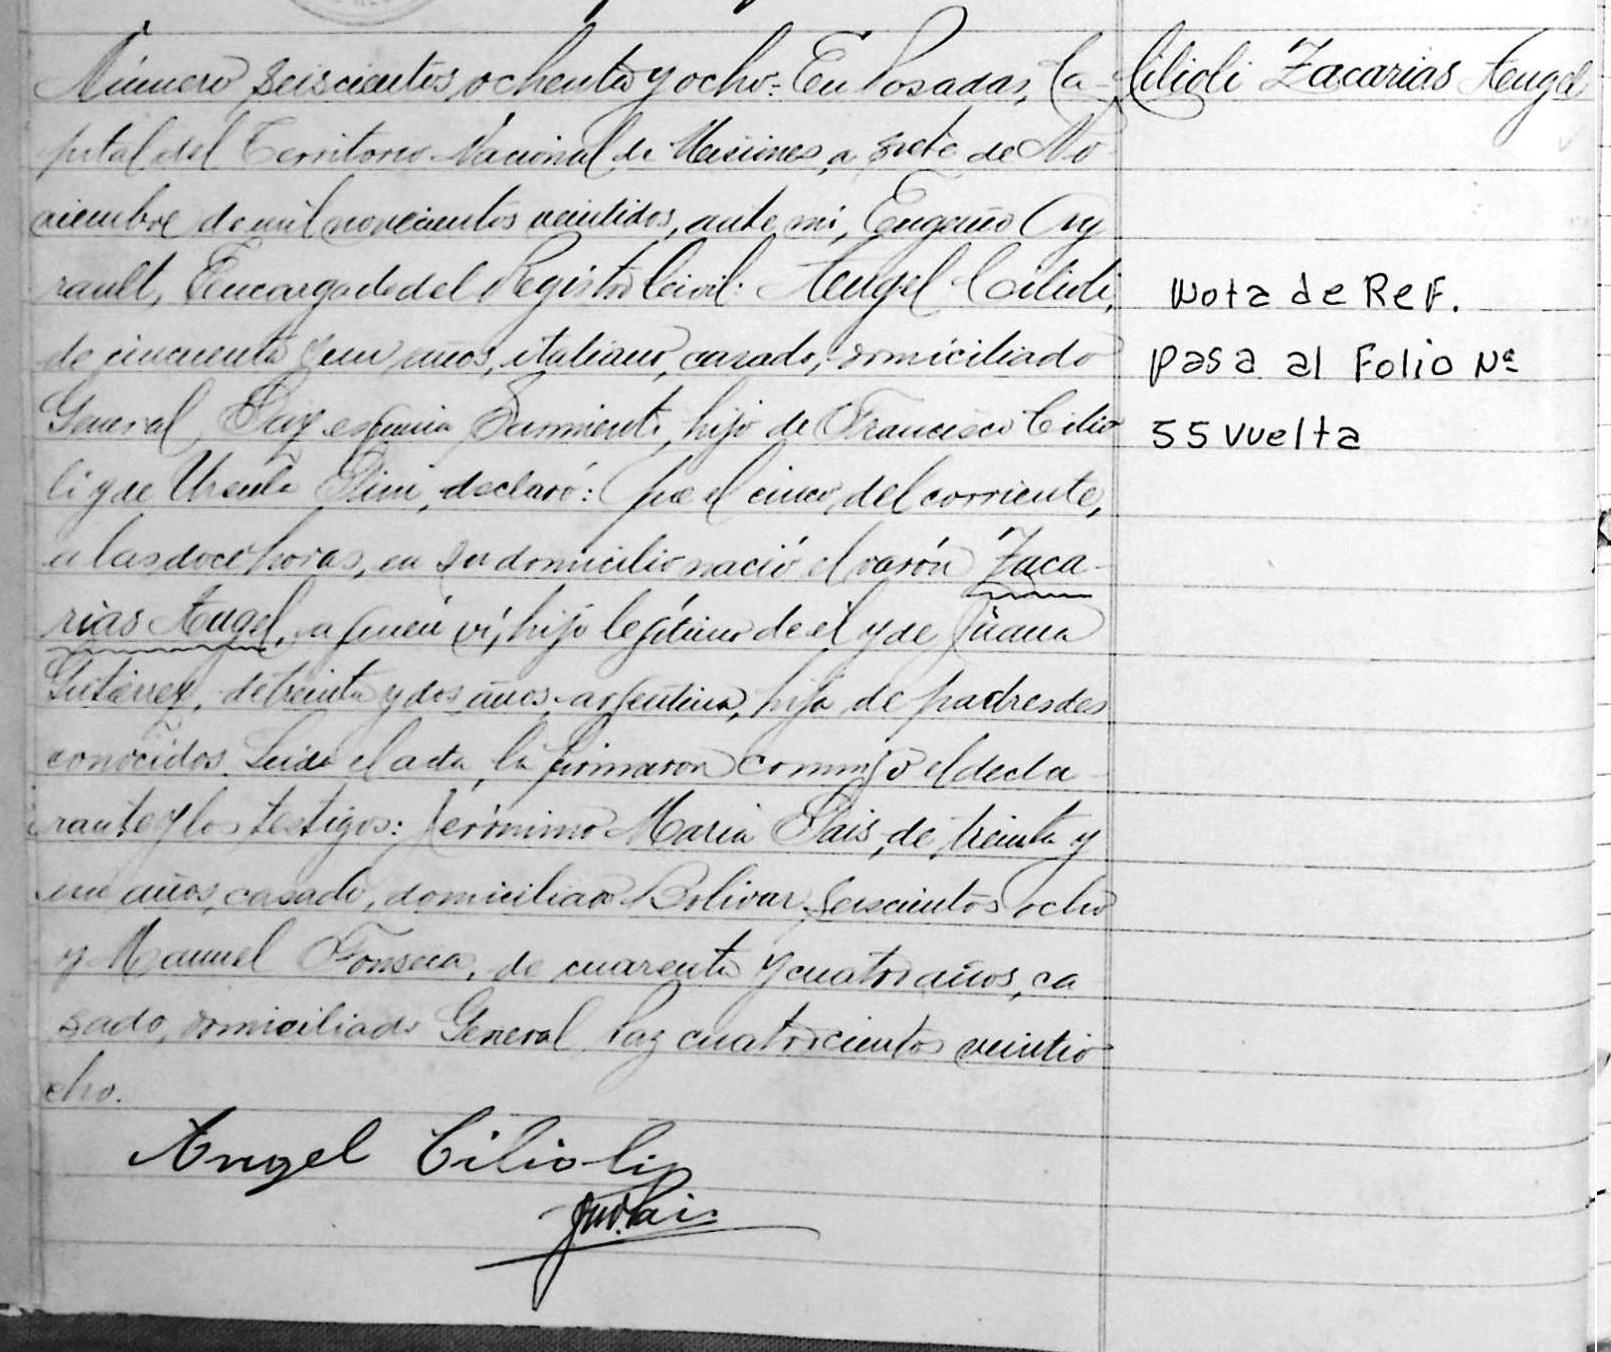 Número seiscientos ochenta y ocho: En Posadas, Ca-
pital del Territorio Nacional de Misiones, a siete de No-
viembre de mil novecientos veintidos, ante mi, Eugenio Ay
rault, Encargado del Registro Civil: Angel Cilioli,
de cincuenta y un años, italiano, casado, domiciliado
General Paz esquina Sarmiento, hijo de Francisco Cilio
li y de Ursula, declaró: Que el cinco del corriente,
a las doce horas, en su domicilio nació el varón Zaca-
rias Angel, a quién ví, hijo legítimo de él y de Juana
Gutierrez, de treinta y dos años, argentina, hija de padres des
conocidos. Leida el acta, la firmaron conmigo el decla-
rante y los testigos: Jerónimo Maria Pais, de treinta y
un años, casado, domiciliado Bolivar seiscientos ocho
y Manuel Fonseca, de cuarenta y cuatro años, ca
sado, domiciliado General Paz cuatrocientos veintio
cho.
Angel Cilioli
Pais
Cilioli Zacarias Angel
Nota de Ref.
Pasa al Folio Nº
55 vuelta